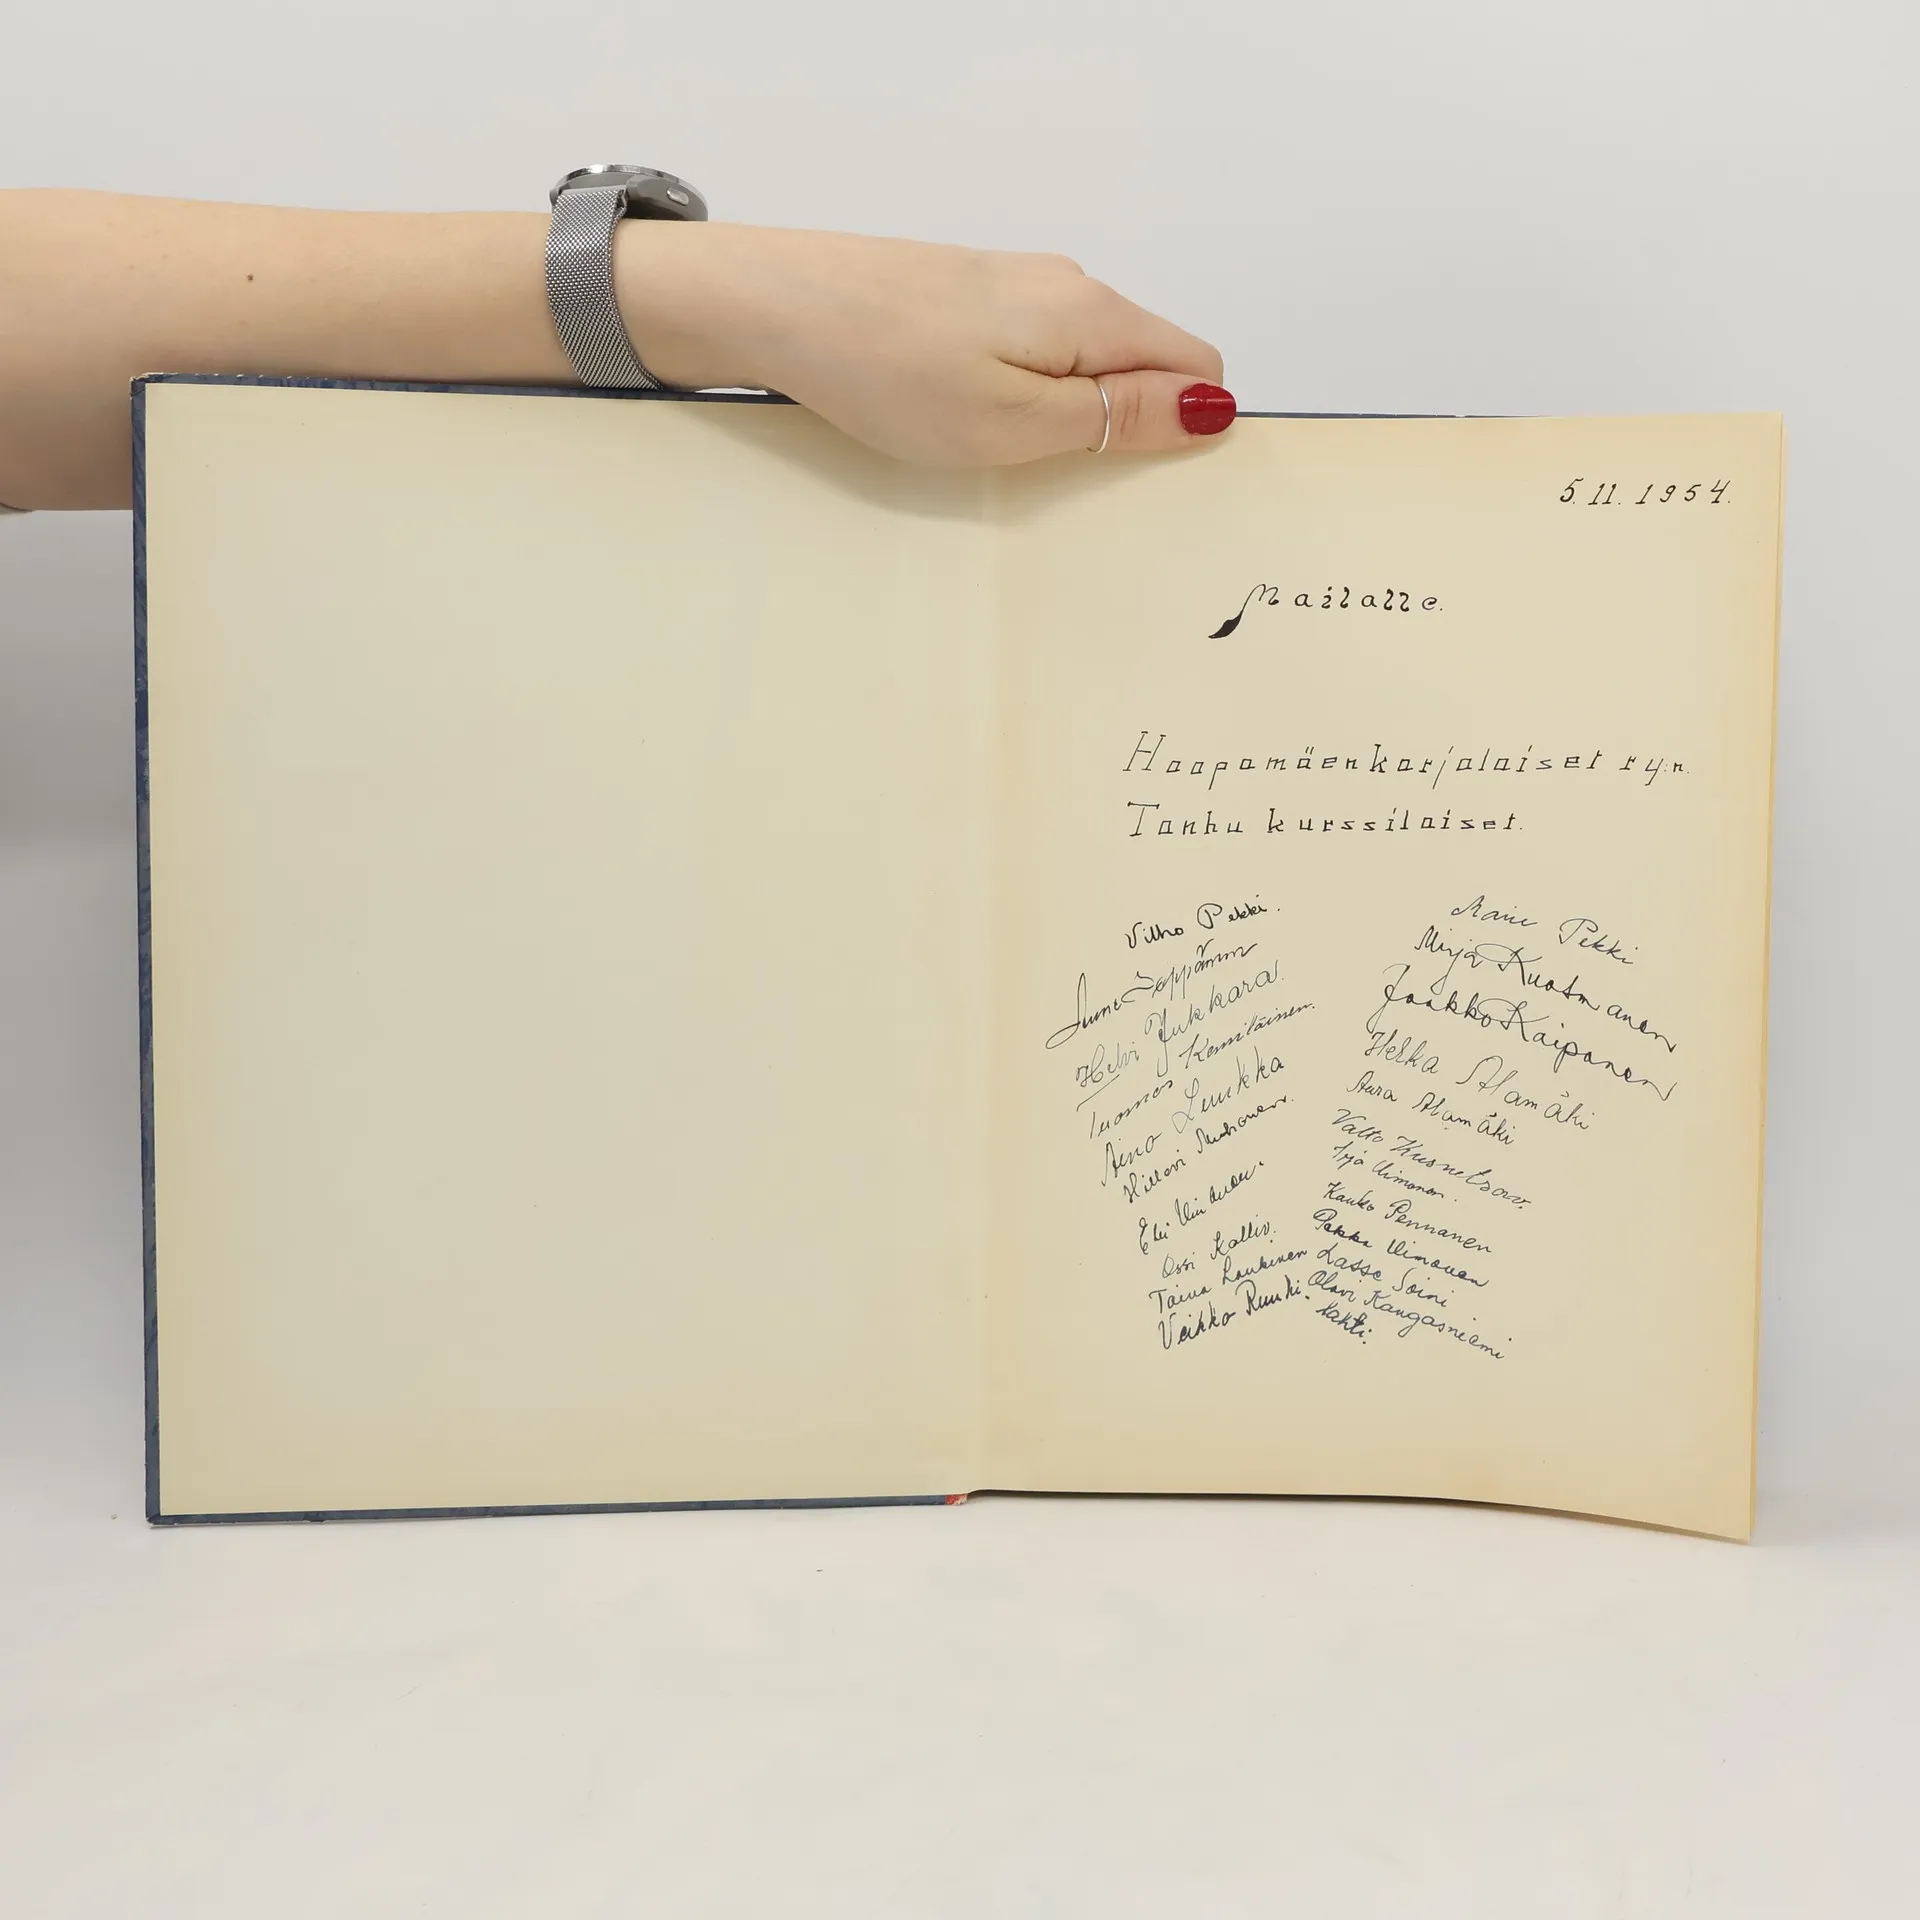 5.11.1954.
Mailalle.
Haapamäenkarjalaiset ry:n.
Tanhu kurssilaiset.
Vilho Pekki.
Seppänen
Helvi Jukkara.
Tuomas Kemiläinen.
Aino Luukka
Hillevi Muhonen.
Ossi Kallio.
Taina Laukinen
Veikko Ruuhi.
Maire Pekki
Mirja Kuosmanen
Jaakko Kaipanen
Helka Alamäki
Aura Alamäki
Valto Kusnetsow.
Irja Uimonen.
Kauko Pennanen
Pekka Uimonen
Lasse Soini
Olavi Kangasniemi
Lahti.